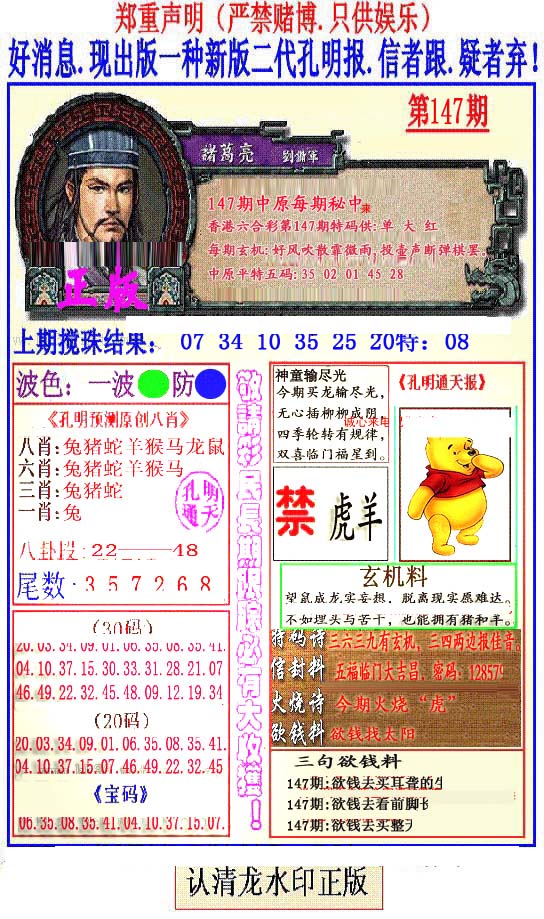 郑重声明（严禁赌博.只供娱乐）
好消息.现出版一种新版二代孔明报.信者跟.疑者弃!
第147期
諸葛亮 劉備軍
147期中原每期秘中来
香港六合彩第147期特码供: 单 大 红
每期玄机: 好风吹散霏微雨,投壶声断弹棋罢。
中原平特五码: 35 02 01 45 28
正版
上期搅珠结果: 07 34 10 35 25 20特: 08
波色: 一波 防
《孔明预测原创八肖》
八肖:兔猪蛇羊猴马龙鼠
六肖:兔猪蛇羊猴马
三肖:兔猪蛇
一肖:兔
孔明通天
八卦段:22——48
尾数·357268
(30码)
20.03.34.09.01.06.35.08.35.41.
04.10.37.15.30.33.31.28.21.07
46.49.22.32.45.48.09.12.19.34
(20码)
20.03.34.09.01.06.35.08.35.41.
04.10.37.15.07.46.49.22.32.45
《宝码》
06.35.08.35.41.04.10.37.15.07.
敬請彩民長期跟踪必有大收獲！
神童输尽光
今期买龙输尽光,
无心插柳柳成阴,
诚心来电
四季轮转有规律,
双喜临门福星到。
《孔明通天报》
禁 虎羊
玄机料
望鼠成龙实妄想，脱离现实愿难达。
不如埋头与苦干，也能拥有猪和羊。
特码诗 三六三九有玄机，三四两边报佳音。
信封料 五福临门大吉昌，密码：128579
火烧诗 今期火烧“虎”
欲钱料 欲钱找太阳
三句欲钱料
147期:欲钱去买耳聋的
147期:欲钱去看前脚
147期:欲钱去买整
认清龙水印正版